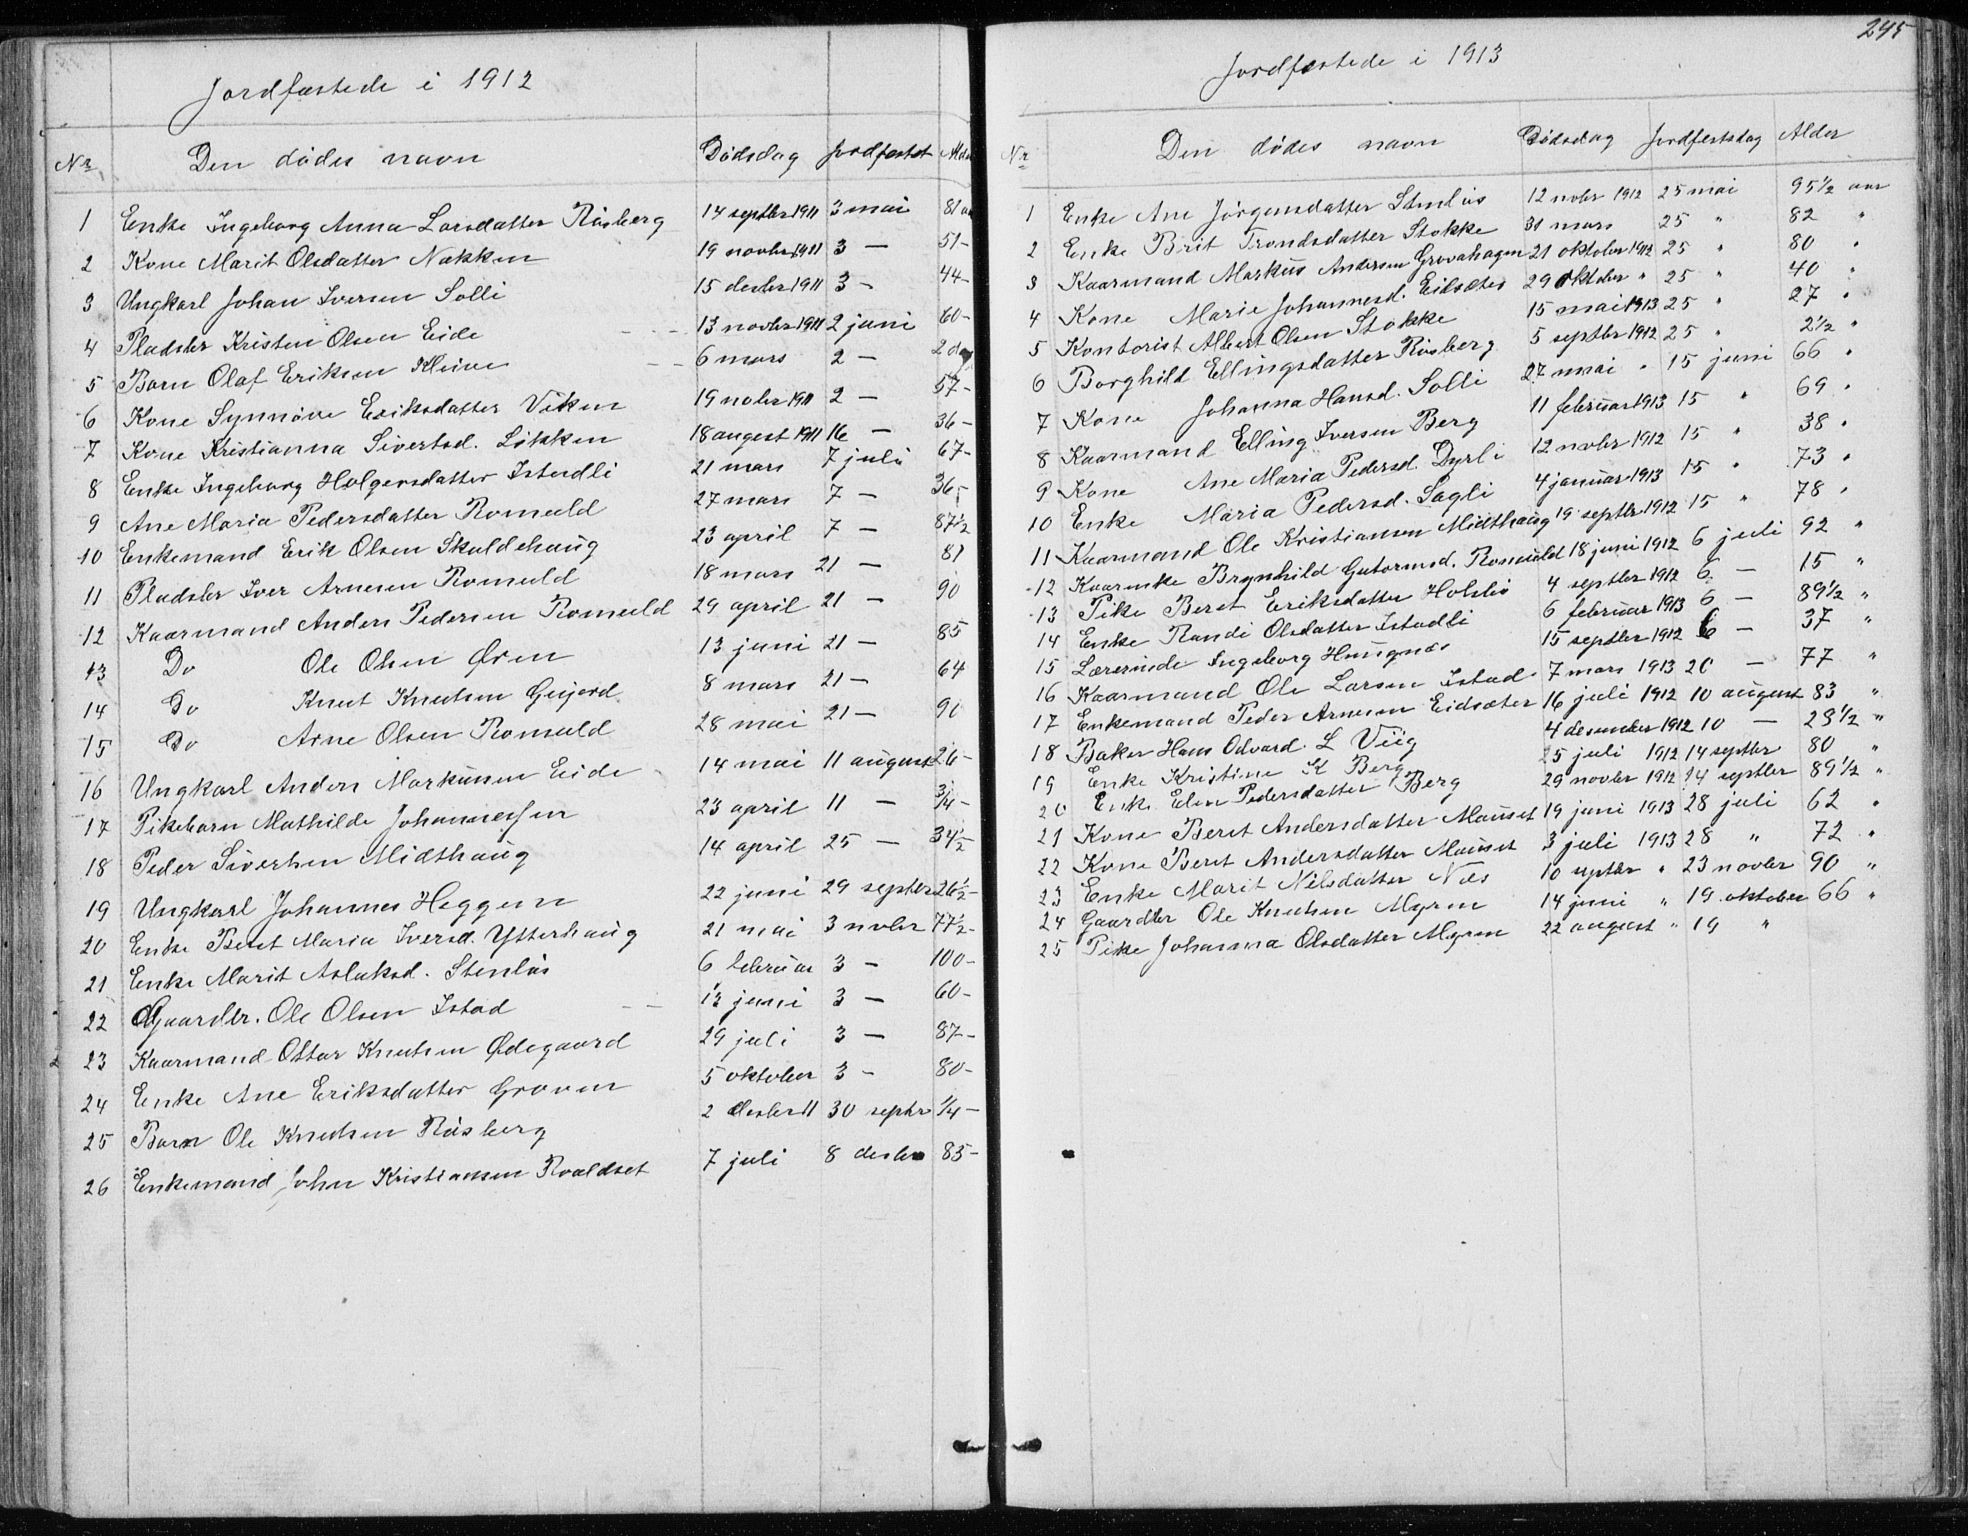 Jordfæstede i 1912
Nr. Den dødes navn Dødsdag Jordfæstet Alder
1 Enke Ingeborg Anna Larsdatter Røsberg 14 septbr 1911 3 mai 81 aa
2 Kone Marit Olsdatter Nakken 19 novbr 1911 3 — 51 -
3 Ungkarl Johan Iversen Solli 15 desbr 1911 3 - 44 -
4 Pladsbr Kristen Olsen Eide 13 novbr 1911 2 juni 60 -
5 Barn Olaf Eriksen Kleive 6 mars 2 — 2 dag
6 Kone Synnøve Eriksdatter Viken 19 nobr 1911 2 — 57 -
7 Kone Kristianna Sivertsd. Løkken 18 augest 1911 16 — 36 -
8 Enke Ingeborg Holgersdatter Istadli 21 mars 7 juli 67 -
9 Ane Maria Pedersdatter Romuld 27 mars 7 — 36 -
10 Enkemand Erik Olsen Skaldehaug 23 april 7 — 87 1/2
11 Pladsbr Iver Arnesen Romuld 18 mars 21 — 81
12 Kaarmand Anders Pedersen Romuld 29 april 21 — 90
13 Do Ole Olsen Øren 13 juni 21 — 85
14 Do Knut Knutsen Gujord 8 mars 21 — 64
15 Do Arne Olsen Romuld 28 mai 21 — 90
16 Ungkarl Anders Markussen Eide 14 mai 11 august 26 -
17 Pikebarn Mathilde Johannessen 23 april 11 — 3/4 -
18 Peder Sivertsen Midthaug 14 april 25 — 34 1/2
19 Ungkarl Johannes Heggem 22 juni 29 septbr 26 1/2 -
20 Enke Beret Maria Iversd. Ytterhaug 21 mai 3 novbr 77 1/2 -
21 Enke Marit Aslaksd. Stenløs 6 februar 3 — 100 -
22 Gaardbr. Ole Olsen Istad 13 juni 3 — 60 -
23 Kaarmand Ottar Knutsen Ødegaard 29 juli 3 — 87 -
24 Enke Ane Eriksdatter Groven 5 oktober 3 - 80 -
25 Barn Ole Knutsen Røsberg 2 desbr 11 30 septbr 1/4 -
26 Enkemand John Kristiansen Roaldset 7 juli 8 desbr 85 -
245
Jordfæstede i 1913
Nr. Den dødes navn Dødsdag Jordfestsdag Alder
1 Enke Ane Jørgensdatter Stenløs 12 nobr 1912 25 mai 95 1/2 aar
2 Enke Brit Trondsdatter Stokke 31 mars 25 " 82 "
3 Kaarmand Markus Andersen Grovahagen 21 oktober 1912 25 " 80 "
4 Kone Marie Johannesd. Eidsæter 29 oktober " 25 " 40 "
5 Kontorist Albert Olsen Stokke 15 mai 1913 25 " 27 "
6 Borghild Ellingsdatter Røsberg 5 septbr 1912 25 " 2 1/2 "
7 Kone Johanna Hansd. Solli 27 mai " 15 juni 66 "
8 Kaarmand Elling Iversen Berg 11 februar 1913 15 " 69 "
9 Kone Ane Maria Pedersd. Dyrli 12 nobr 1912 15 " 38 "
10 Enke Maria Pedersd. Sagli 4 januar 1913 15 " 73 "
11 Kaarmand Ole Kristiansen Midthaug 19 septbr 1912 15 " 78 "
12 Kaarenke Brynhild Gutormsd. Romuld 18 juni 1912 6 juli 92 "
13 Pike Beret Eriksdatter Holsbø 4 septbr 1912 6 — 15 "
14 Enke Randi Olsdatter Istadli 6 februar 1913 6 — 89 1/2 "
15 Lærerinde Ingeborg Haugnæs 15 septbr 1912 6 — 37 "
16 Kaarmand Ole Larsen Istad 7 mars 1913 20 — 77 "
17 Enkemand Peder Arnesen Eidsæter 16 juli 1912 10 august 83 "
18 Baker Hans Odvard L Viig 4 desember 1912 10 — 28 1/2 "
19 Enke Kristine K Berg 25 juli 1912 14 septbr 80 "
20 Enke Elen Pedersdatter Berg 29 novbr 1912 14 septbr 89 1/2 "
21 Kone Beret Andersdatter Mauset 19 juni 1913 28 juli 62 "
22 Kone Beret Andersdatter Mauset 3 juli 1913 28 " 72 "
23 Enke Marit Nilsdatter Næs 10 septbr " 23 novbr 90 "
24 Gaardbr Ole Knutsen Myren 14 juni " 19 oktober 66 "
25 Pike Johanna Olsdatter Myren 22 august " 19 "